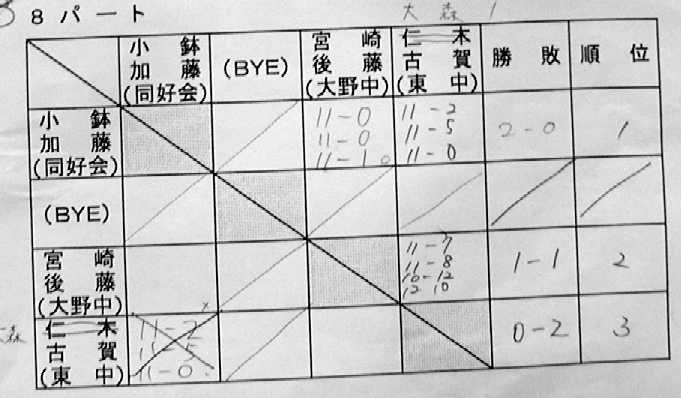 8パート
大森
小鉢
加藤
(同好会)
(BYE)
宮崎
後藤
(大野中)
仁木
古賀
(東中)
勝敗
順位
小鉢
加藤
(同好会)
11-0
11-0
11-1
11-2
11-5
11-0
2-0
1
(BYE)
宮崎
後藤
(大野中)
11-7
11-8
10-12
12 10
1-1
2
森
仁木
古賀
(東中)
11-2
11-5
11-0
0-2
3